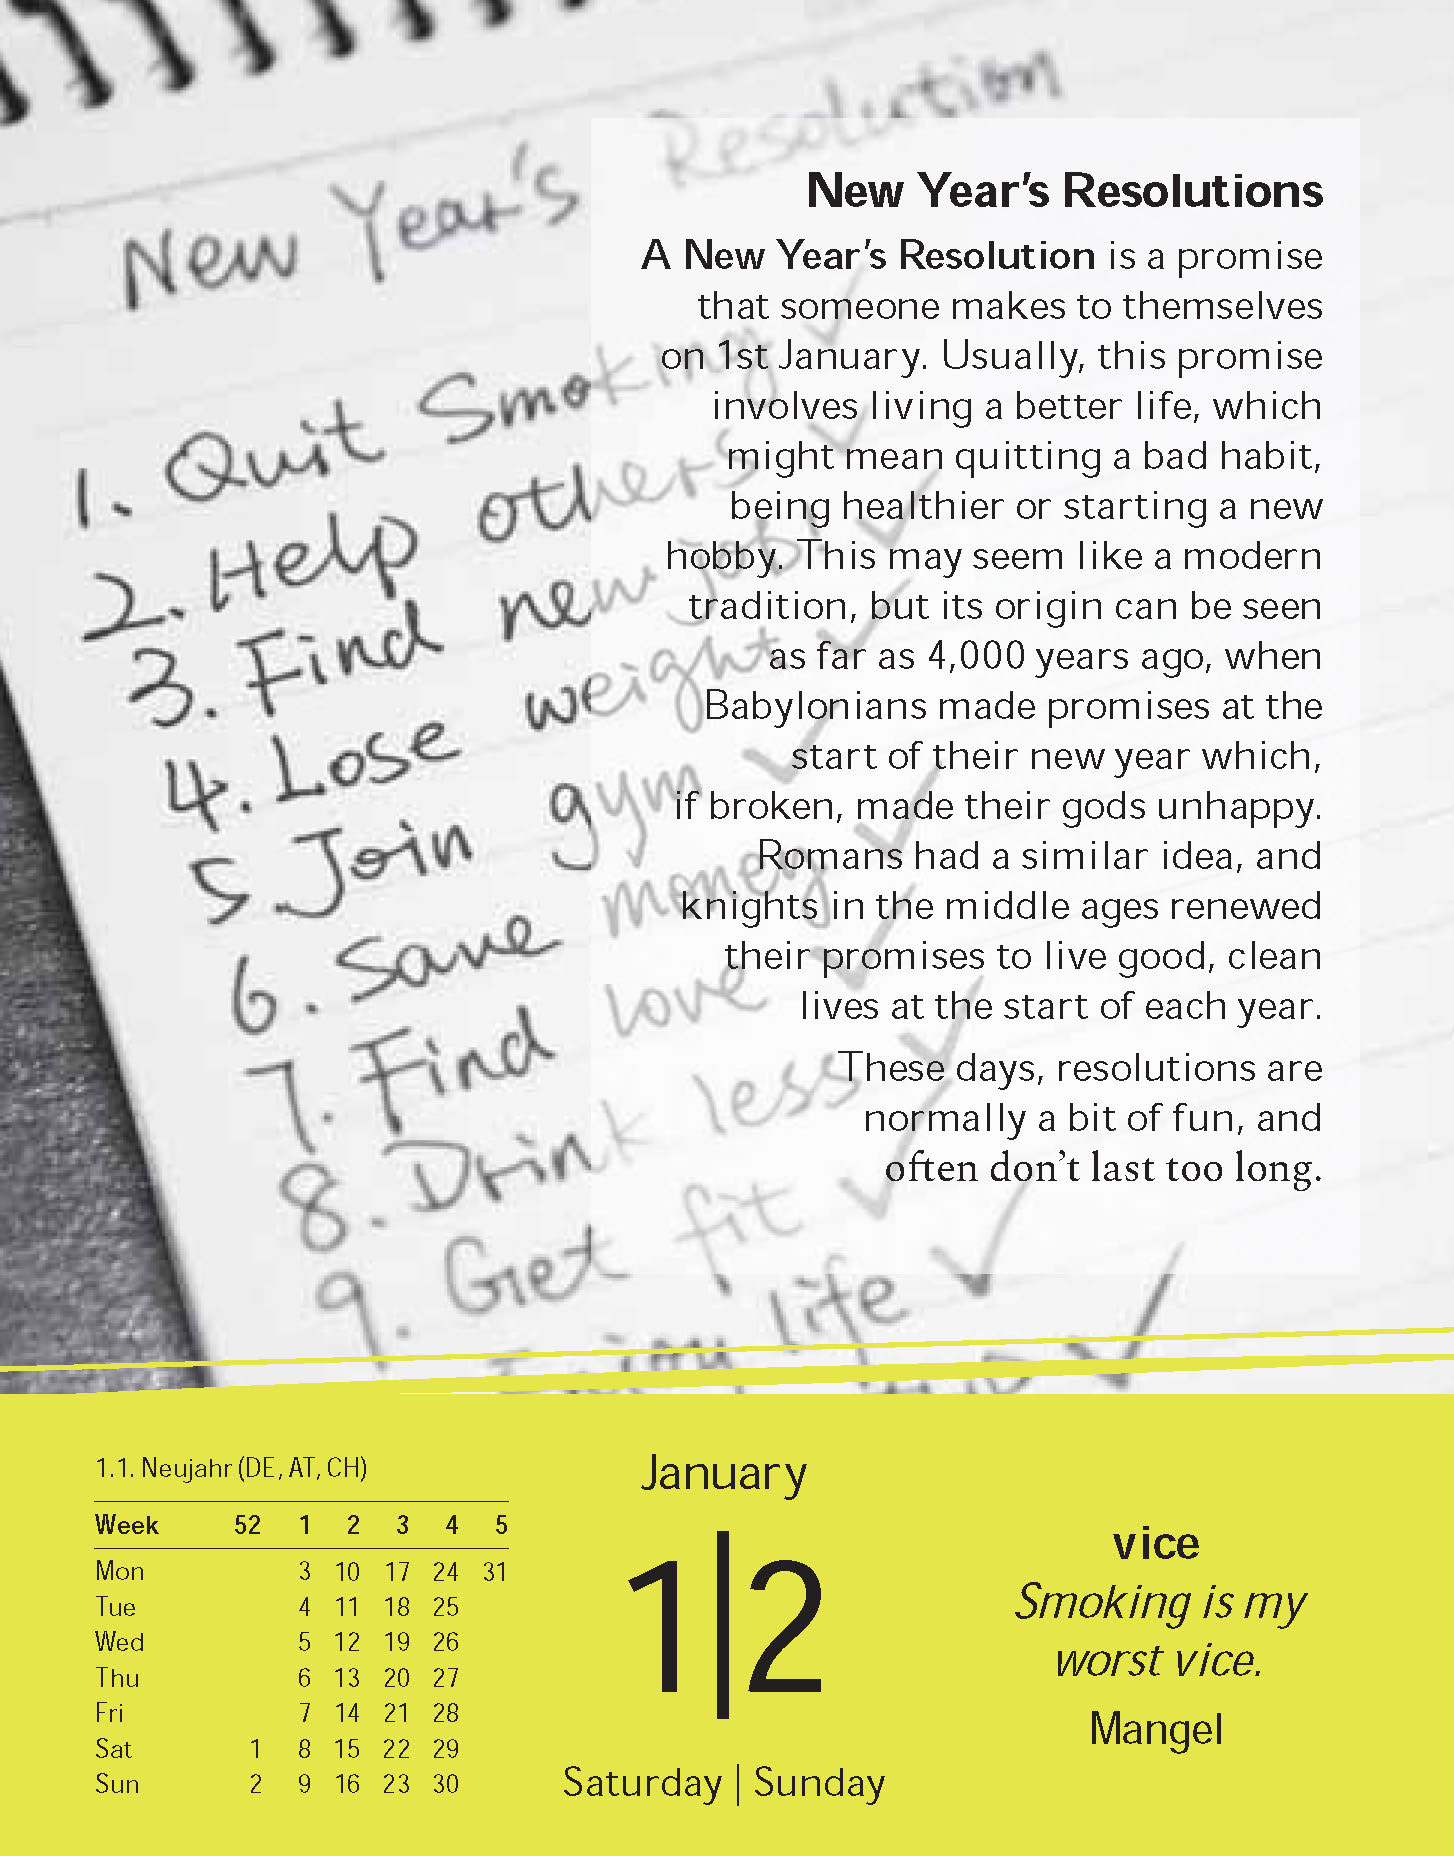 New Year's Resolution
1. Quit Smoking
2. Help others
3. Find new job
4. Lose weight
5. Join gym
6. Save money
7. Find love
8. Drink less
9. Get fit
Enjoy life
New Year's Resolutions
A New Year's Resolution is a promise
that someone makes to themselves
on 1st January. Usually, this promise
involves living a better life, which
might mean quitting a bad habit,
being healthier or starting a new
hobby. This may seem like a modern
tradition, but its origin can be seen
as far as 4,000 years ago, when
Babylonians made promises at the
start of their new year which,
if broken, made their gods unhappy.
Romans had a similar idea, and
knights in the middle ages renewed
their promises to live good, clean
lives at the start of each year.
These days, resolutions are
normally a bit of fun, and
often don't last too long.
1.1. Neujahr (DE, AT, CH)
Week 52 1 2 3 4 5
Mon 3 10 17 24 31
Tue 4 11 18 25
Wed 5 12 19 26
Thu 6 13 20 27
Fri 7 14 21 28
Sat 1 8 15 22 29
Sun 2 9 16 23 30
January
1|2
Saturday | Sunday
vice
Smoking is my
worst vice.
Mangel